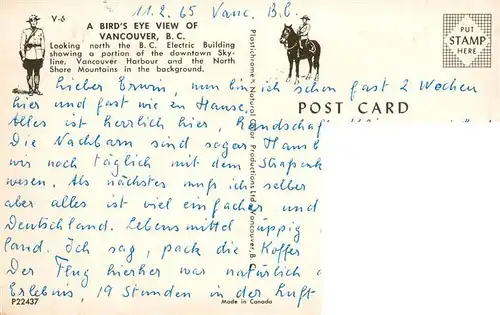 11.2.65 Vanc. B.C.
V-6
A BIRD'S EYE VIEW OF
VANCOUVER, B. C.
Looking north the B. C. Electric Building
showing a portion of the downtown Sky-
line. Vancouver Harbour and the North
Shore Mountains in the background.
PUT
STAMP
HERE
POST CARD
Plastichrome® Natural Color Productions Ltd., Vancouver, B. C.
Lieber Erwin, nun bin ich schon fast 2 Wochen
hier und fast wie zu Hause.
Alles ist herrlich hier, Landschaft
Die Nachbarn sind sogar Hamb
wir noch täglich mit dem Straßenk
wesen. Als nächstes muß ich selber
aber alles ist viel einfacher und
Deutschland. Lebensmittel üppig
land. Ich sag, pack die Koffer
Der Flug hierher war natürlich
Erlebnis, 19 Stunden in der Luft
P22437
Made in Canada